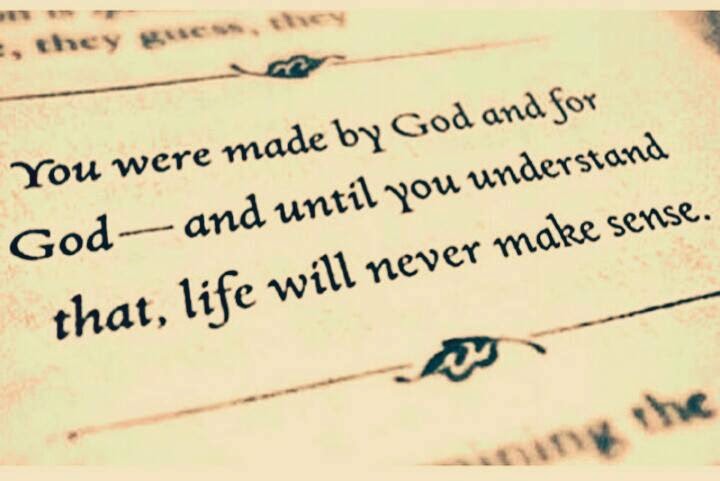 , they guess, they
You were made by God and for
God—and until you understand
that, life will never make sense.
ining the